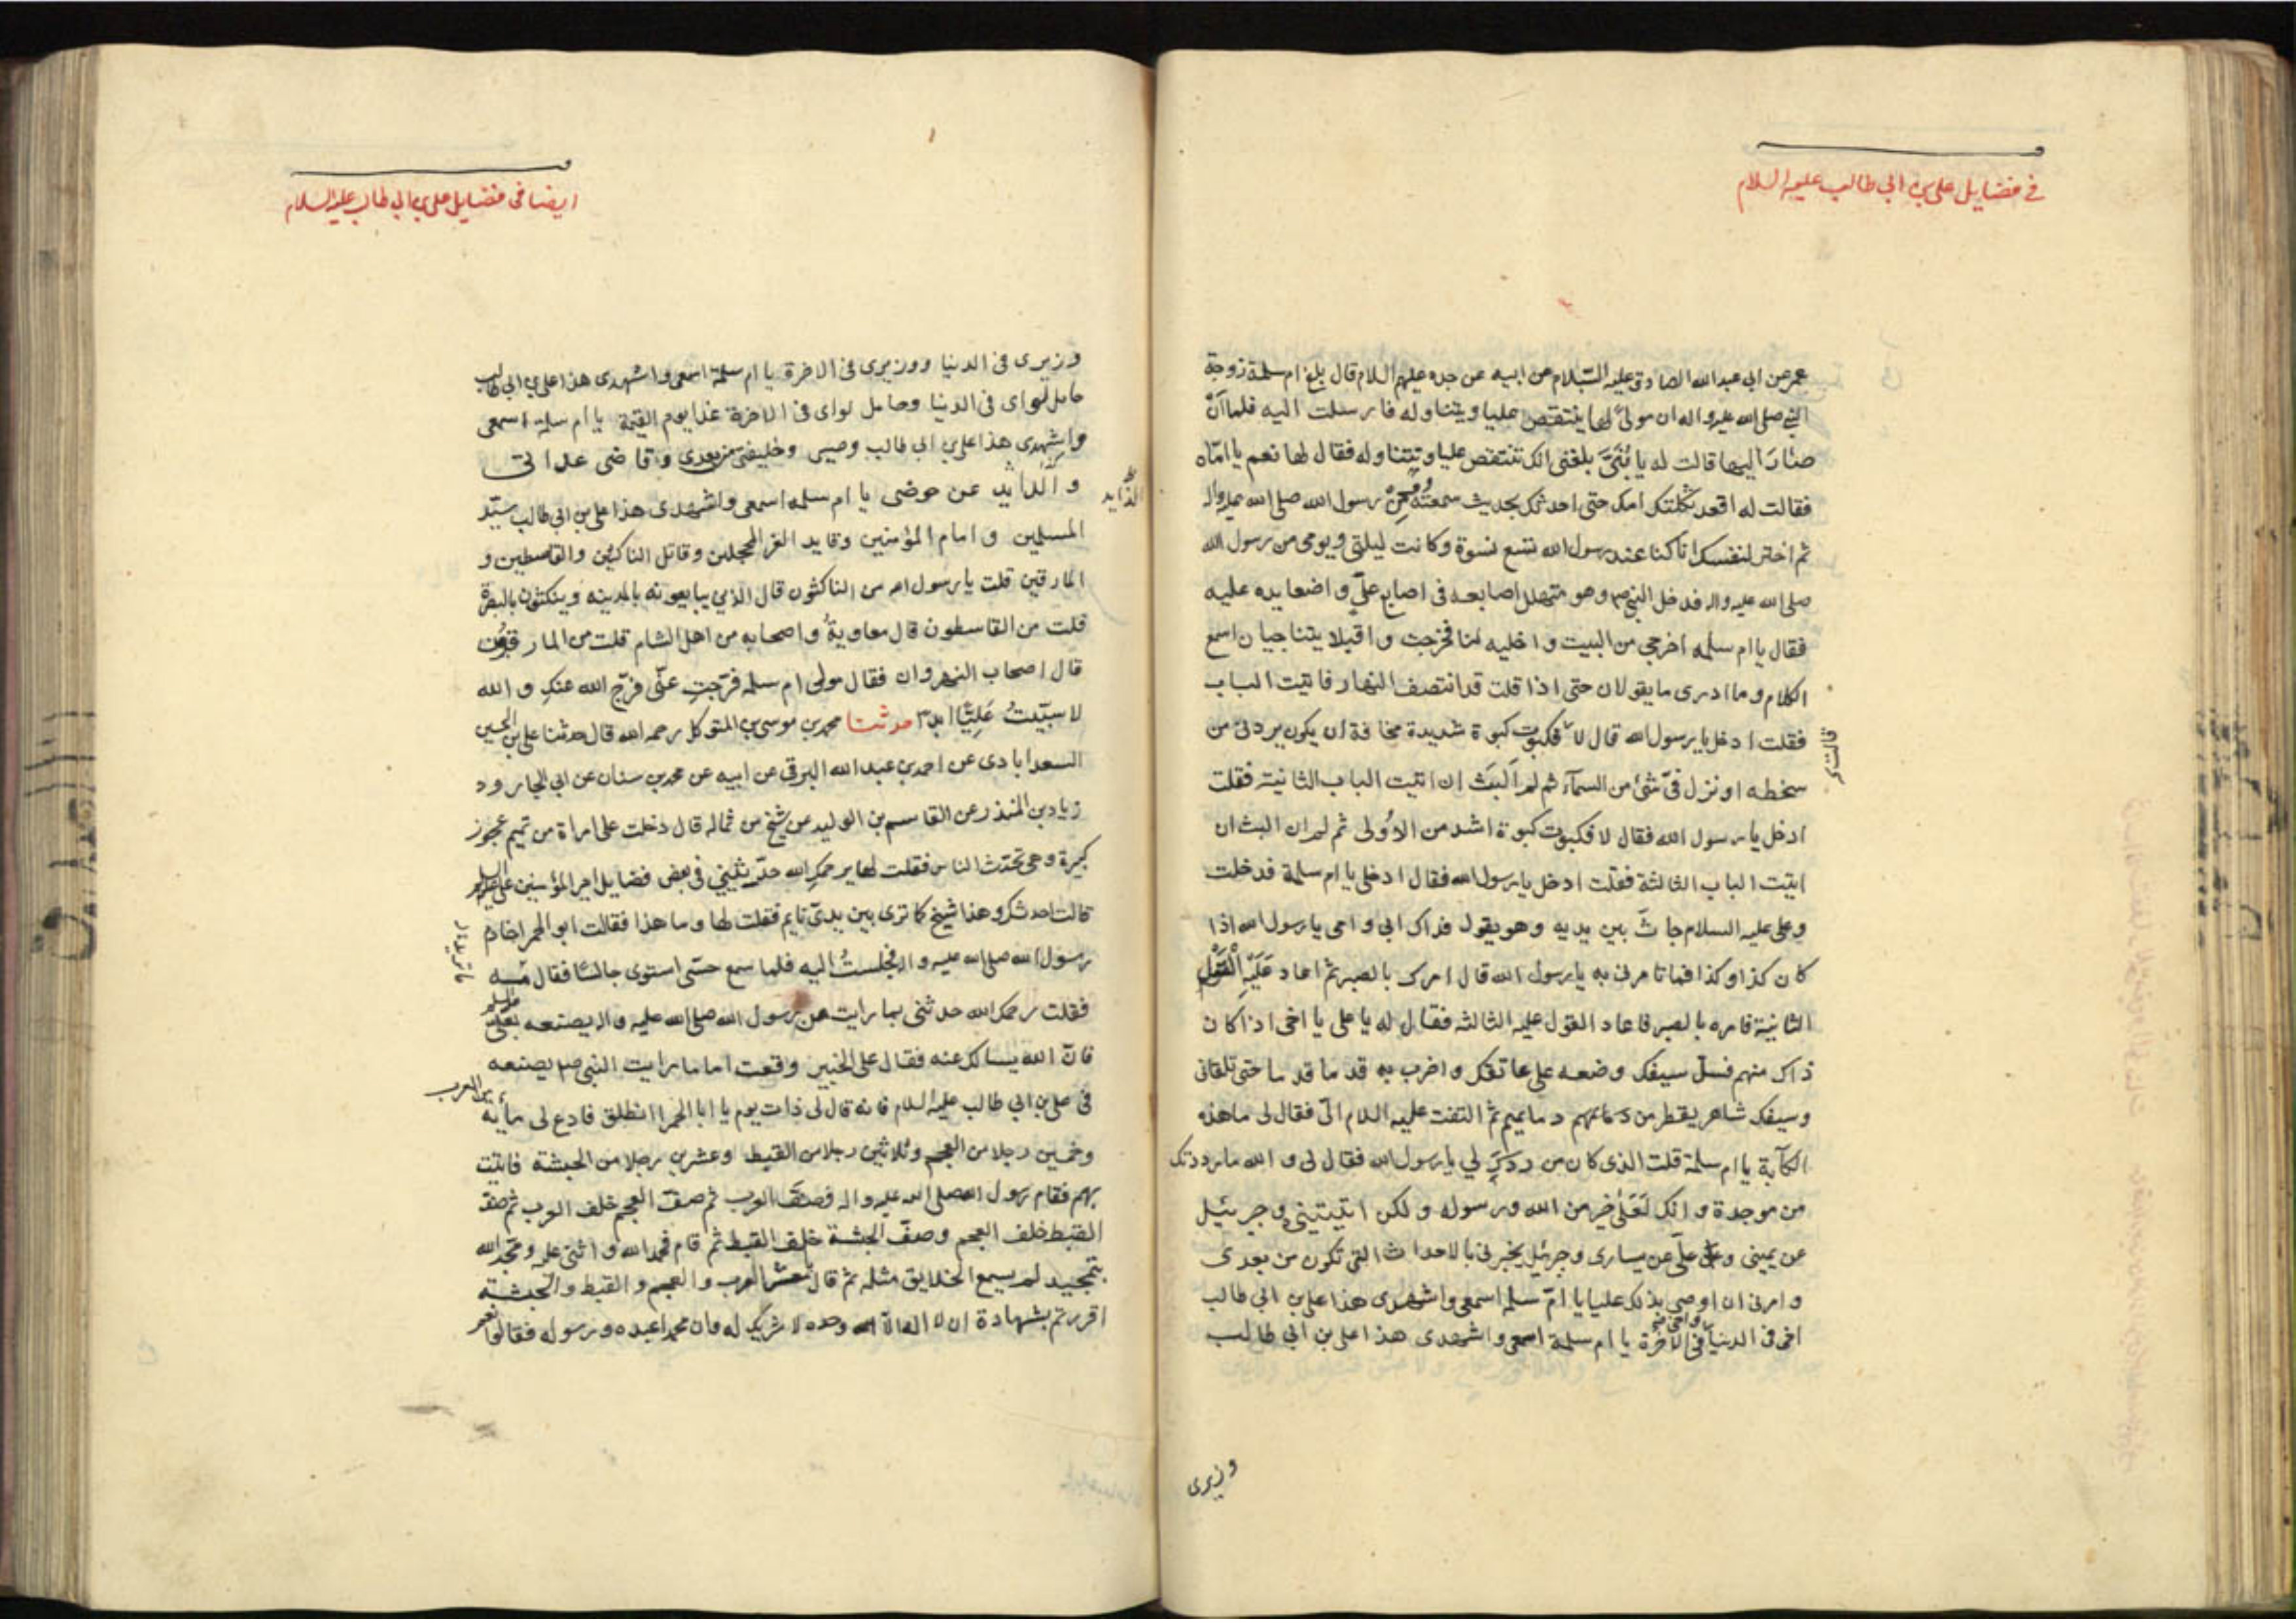 في فضايل علي بن ابي طالب عليه السلام
عمر عن ابي عبدالله الصادق عليه السّلام عن ابيه عن جده عليهم السلام قال بلغ ام سلمة زوجة
النبي صلى الله عليه واله ان مولىً لها ينتقص عليا ويتناوله فارسلت اليه فلما انّ
صار اليها قالت له يا بُنَيَّ بلغنى انك تنتقص عليا وتتناوله فقال لها نعم يا امّاه
فقالت له اقعد ثكلتك امك حتى احدثك بحديث سمعتُه من رسول الله صلى الله عليه واله
ثم اختر لنفسك انا كنا عند رسول الله تسع نسوة وكانت ليلتى ويومى من رسول الله
صلى الله عليه واله فدخل النبي ص وهو متهلل اصابعه فى اصابع عليّ واضعا يده عليه
فقال يا ام سلمه اخرجي من البيت واخليه لنا فخرجت واقبلا يتناجيان اسمع
الكلام وما ادرى ما يقولان حتى اذا قلت قد انتصف النهار فاتيت الباب
فقلت ادخل يا رسول الله قال لا فكبوت كبوة شديدة مخافة ان يكون ردنى من
قالت
سخطه او نزل فىّ شئ من السمآء ثم لم اَلبَث ان اتيت الباب الثانية فقلت
ادخل يا رسول الله فقال لا فكبوت كبوة اشد من الاُولى ثم لم ان البث ان
اتيت الباب الثالثة فقلت ادخل يا رسول الله فقال ادخلى يا ام سلمة فدخلت
وعلى عليه السلام جاث بين يديه وهو يقول فداك ابى وامى يا رسول الله اذا
كان كذا وكذا فما تامرنى به يا رسول الله قال امرك بالصبر ثم اعاد عَلَيْهِ الْقَوْل
الثانية فامره بالصبر فاعاد القول عليه الثالثه فقال له يا على يا اخى اذا كان
ذاك منهم فسلّ سيفك وضعه على عاتقك واضرب به قدما قدما حتى تلقانى
وسيفك شاهر يقطر من دمائهم ثم التفت عليه السلام الىّ فقال لى ما هذه
الكآبة يا ام سلمة قلت الذى كان من ردّكِ لي يا رسول الله فقال لى والله ما رددتك
من موجدة وانك لَعَلى خير من الله ورسوله ولكن اتيتينى وجبرئيل
عن يمينى وعلىّ عن يسارى وجبرئيل يخبرنى بالاحداث التى تكون من بعدى
وامرنى ان اوصى بذلك عليا يا امّ سلمه اسمعى واشهدى هذا على بن ابي طالب
اخى فى الدنيا واخى فى الاخرة يا ام سلمة اسمعى واشهدى هذا على بن ابي طالب
وزيرى
ايضا فى فضايل على بن ابى طالب عليه السلام
وزيرى فى الدنيا ووزيرى فى الاخرة يا ام سلمة اسمعى واشهدى هذا على بن ابي طالب
حامل لواى فى الدنيا وحامل لواى فى الاخرة غدا يوم القيمة يا ام سلمه اسمعى
واشهدى هذا علي بن ابي طالب وصيى وخليفتى من بعدى وقاضى عداتى
والذايد عن حوضى يا ام سلمه اسمعى واشهدى هذا على بن ابي طالب سيّد
الذّايد
المسلمين وامام المؤمنين وقايد الغر المحجلين وقاتل الناكثين والقاسطين و
المارقين قلت يا رسول الله من الناكثون قال الذي يبايعونه بالمدينه وينكثون بالبصرة
قلت من القاسطون قال معاويةُ واصحابه من اهل الشام قلت من المارقون
قال اصحاب النهروان فقال مولى ام سلمه فرّجتِ عنّى فرّج الله عنكِ والله
لا سبّيتُ عَلِيًّا ابدا حدثنا محمد بن موسى بن المتوكل رحمه الله قال حدثنا على بن الحسين
السعدابادى عن احمد بن عبد الله البرقى عن ابيه عن محمد بن سنان عن ابي الجارود
زياد بن المنذر عن القاسم بن الوليد عن شيخ من ثماله قال دخلت على امراة من تميم عجوز
كبيرة وهى تحدّث الناس فقلت لها يرحمكِ الله حدّثيني في بعض فضايل امير المؤمنين على عليه السلام
قالت احدثك وهذا شيخ كما ترى بين يدىّ نايم فقلت لها وما هذا فقالت ابو الحمرا خادم
رسول الله صلى الله عليه واله فجلستُ اليه فلما سمع حسّى استوى جالسًا فقال مه
فقلت رحمك الله حدثنى بما رايت من رسول الله صلى الله عليه واله يصنعه بعلىّ عليه السلام
فانّ الله يسالك عنه فقال على الخبير وقعت اما ما رايت النبى ص يصنعه
فى على بن ابي طالب عليه السلام فانه قال لى ذات يوم يا ابا الحمرا انطلق فادع لى مأية من العرب
وخمسين رجلا من العجم وثلاثين رجلا من القبط وعشرين رجلا من الحبشة فاتيت
بهم فقام رسول الله صلى الله عليه واله فصفّ العرب ثم صفّ العجم خلف العرب ثم صفّ
القبط خلف العجم وصفّ الحبشة خلف القبط ثم قام فحمد الله واثنى عليه ومجّد الله
بتمجيد لم يسمع الخلايق مثله ثم قال معشر العرب والعجم والقبط والحبشة
اقررتم بشهادة ان لا اله الا الله وحده لا شريك له وان محمدا عبده ورسوله فقالوا نعم